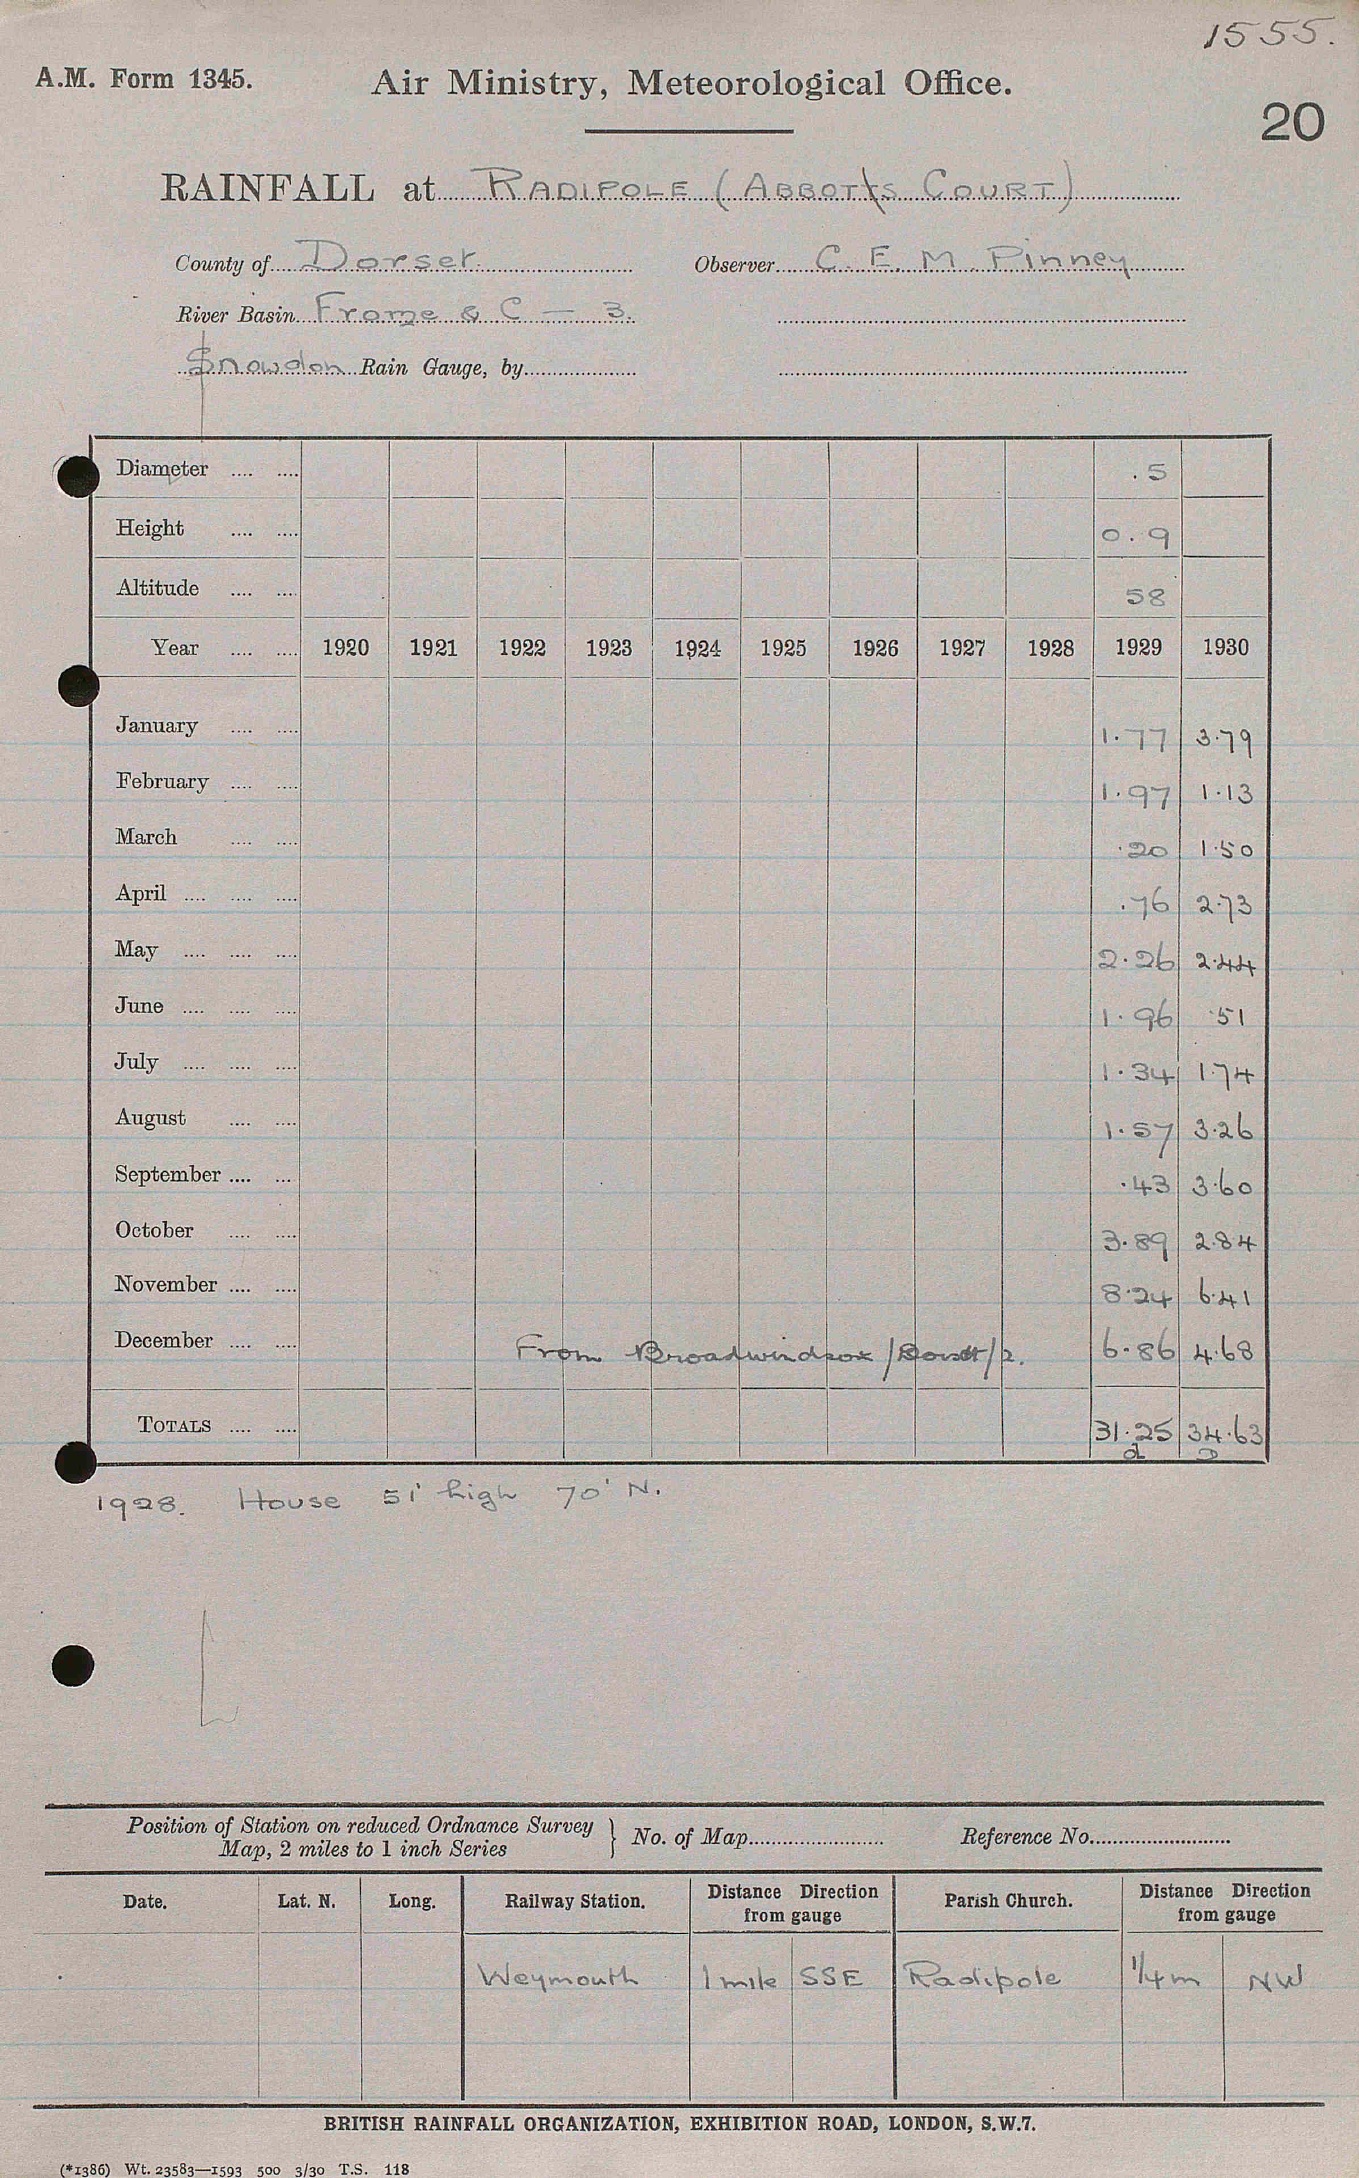 1555.
A.M. Form 1345. Air Ministry, Meteorological Office.
20
RAINFALL at RADIPOLE (ABBOTTS COURT)
County of Dorset. Observer C. E. M. Pinney
River Basin Frome & C — 3.
Snowdon Rain Gauge, by
Diameter .... .... .5
Height .... .... 0.9
Altitude .... .... 58
Year .... .... 1920 1921 1922 1923 1924 1925 1926 1927 1928 1929 1930
January .... .... 1.77 3.79
February .... .... 1.97 1.13
March .... .... .20 1.50
April .... .... .... .76 2.73
May .... .... .... 2.26 2.44
June .... .... .... 1.96 .51
July .... .... .... 1.34 1.74
August .... .... 1.57 3.26
September .... .... .43 3.60
October .... .... 3.89 2.84
November .... .... 8.24 6.41
December .... .... From Broadwindsor /Dorset/2. 6.86 4.68
TOTALS .... .... 31.25 34.63
1928. House 51' high 70' N.
Position of Station on reduced Ordnance Survey
Map, 2 miles to 1 inch Series } No. of Map Reference No.
Date. Lat. N. Long. Railway Station. Distance Direction from gauge Parish Church. Distance Direction from gauge
Weymouth 1 mile SSE Radipole 1/4 m NW
BRITISH RAINFALL ORGANIZATION, EXHIBITION ROAD, LONDON, S.W.7.
(*1386) Wt. 23583—1593 500 3/30 T.S. 118